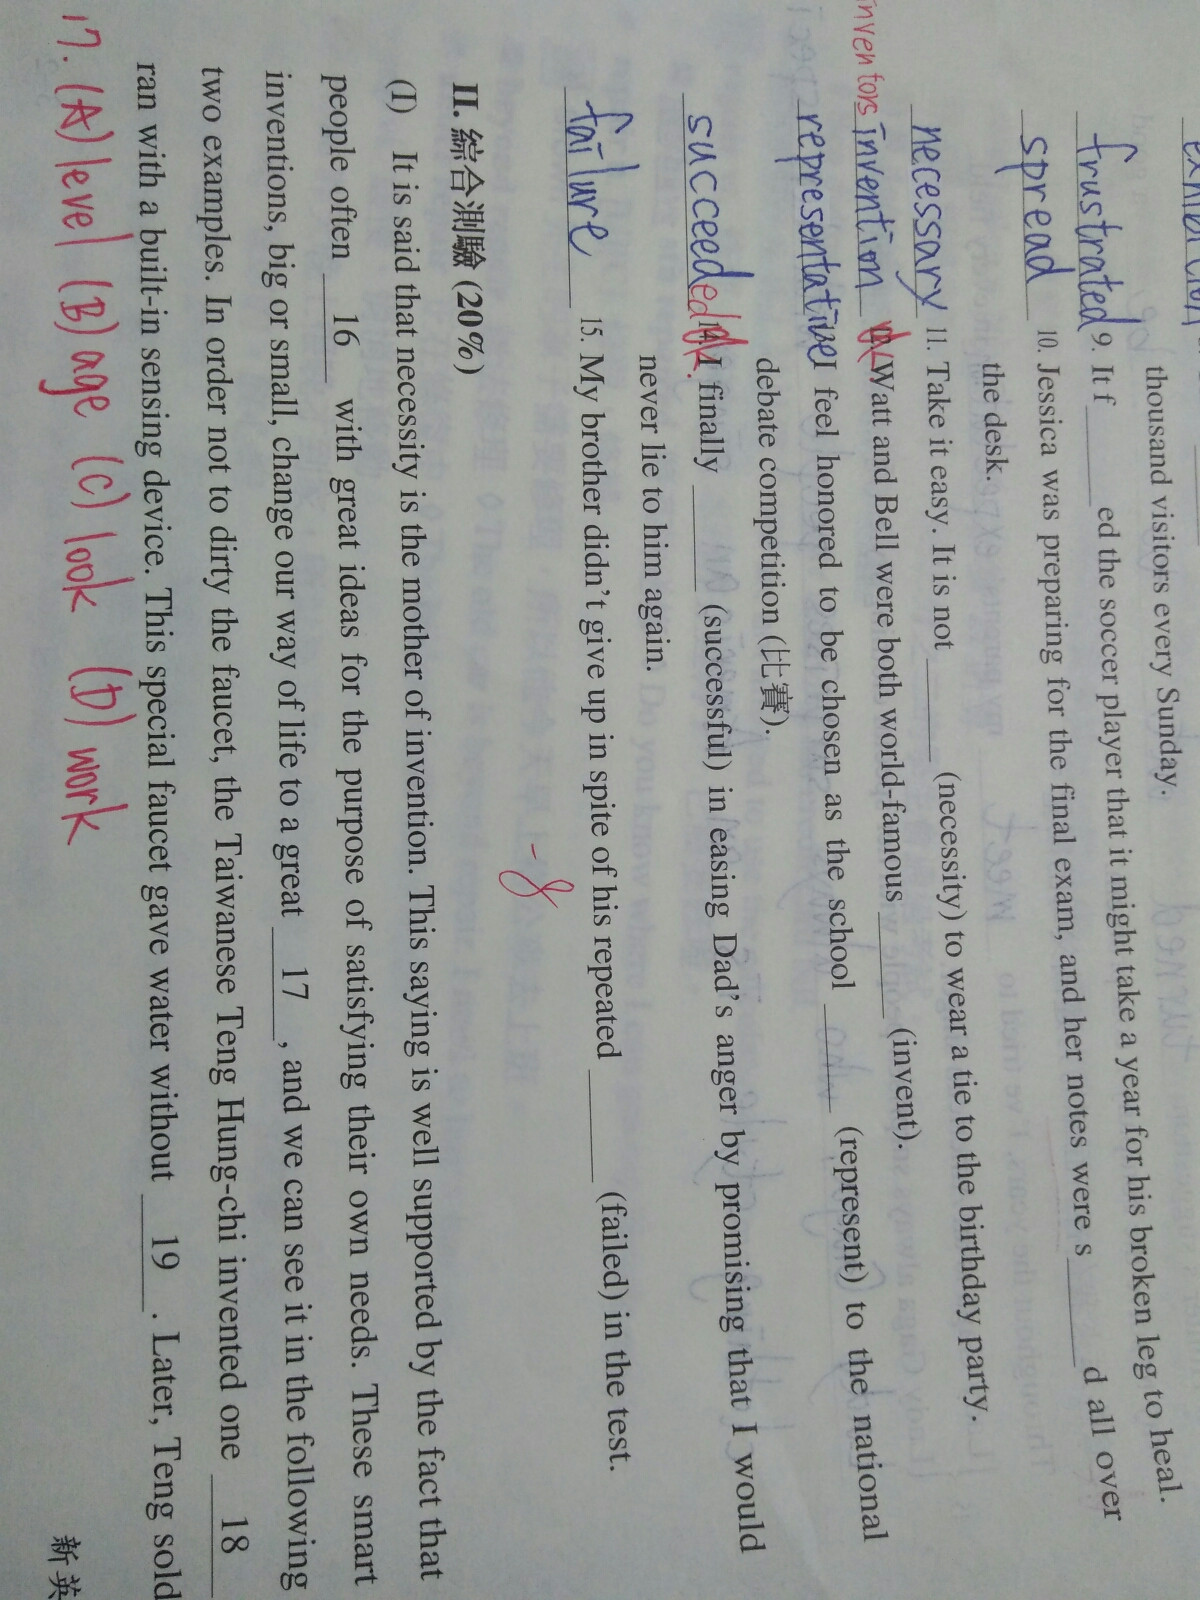 thousand visitors every Sunday.
frustrated 9. It f______ed the soccer player that it might take a year for his broken leg to heal.
spread 10. Jessica was preparing for the final exam, and her notes were s______d all over
the desk.
necessary 11. Take it easy. It is not ______ (necessity) to wear a tie to the birthday party.
inventors invention Watt and Bell were both world-famous ______ (invent).
representative I feel honored to be chosen as the school ______ (represent) to the national
debate competition (比賽).
succeeded 14. I finally ______ (successful) in easing Dad's anger by promising that I would
never lie to him again.
failure 15. My brother didn't give up in spite of his repeated ______ (failed) in the test.
-8
II. 綜合測驗 (20%)
(I) It is said that necessity is the mother of invention. This saying is well supported by the fact that
people often 16 with great ideas for the purpose of satisfying their own needs. These smart
inventions, big or small, change our way of life to a great 17 , and we can see it in the following
two examples. In order not to dirty the faucet, the Taiwanese Teng Hung-chi invented one 18
ran with a built-in sensing device. This special faucet gave water without 19 . Later, Teng sold
17. (A) level (B) age (C) look (D) work
新英